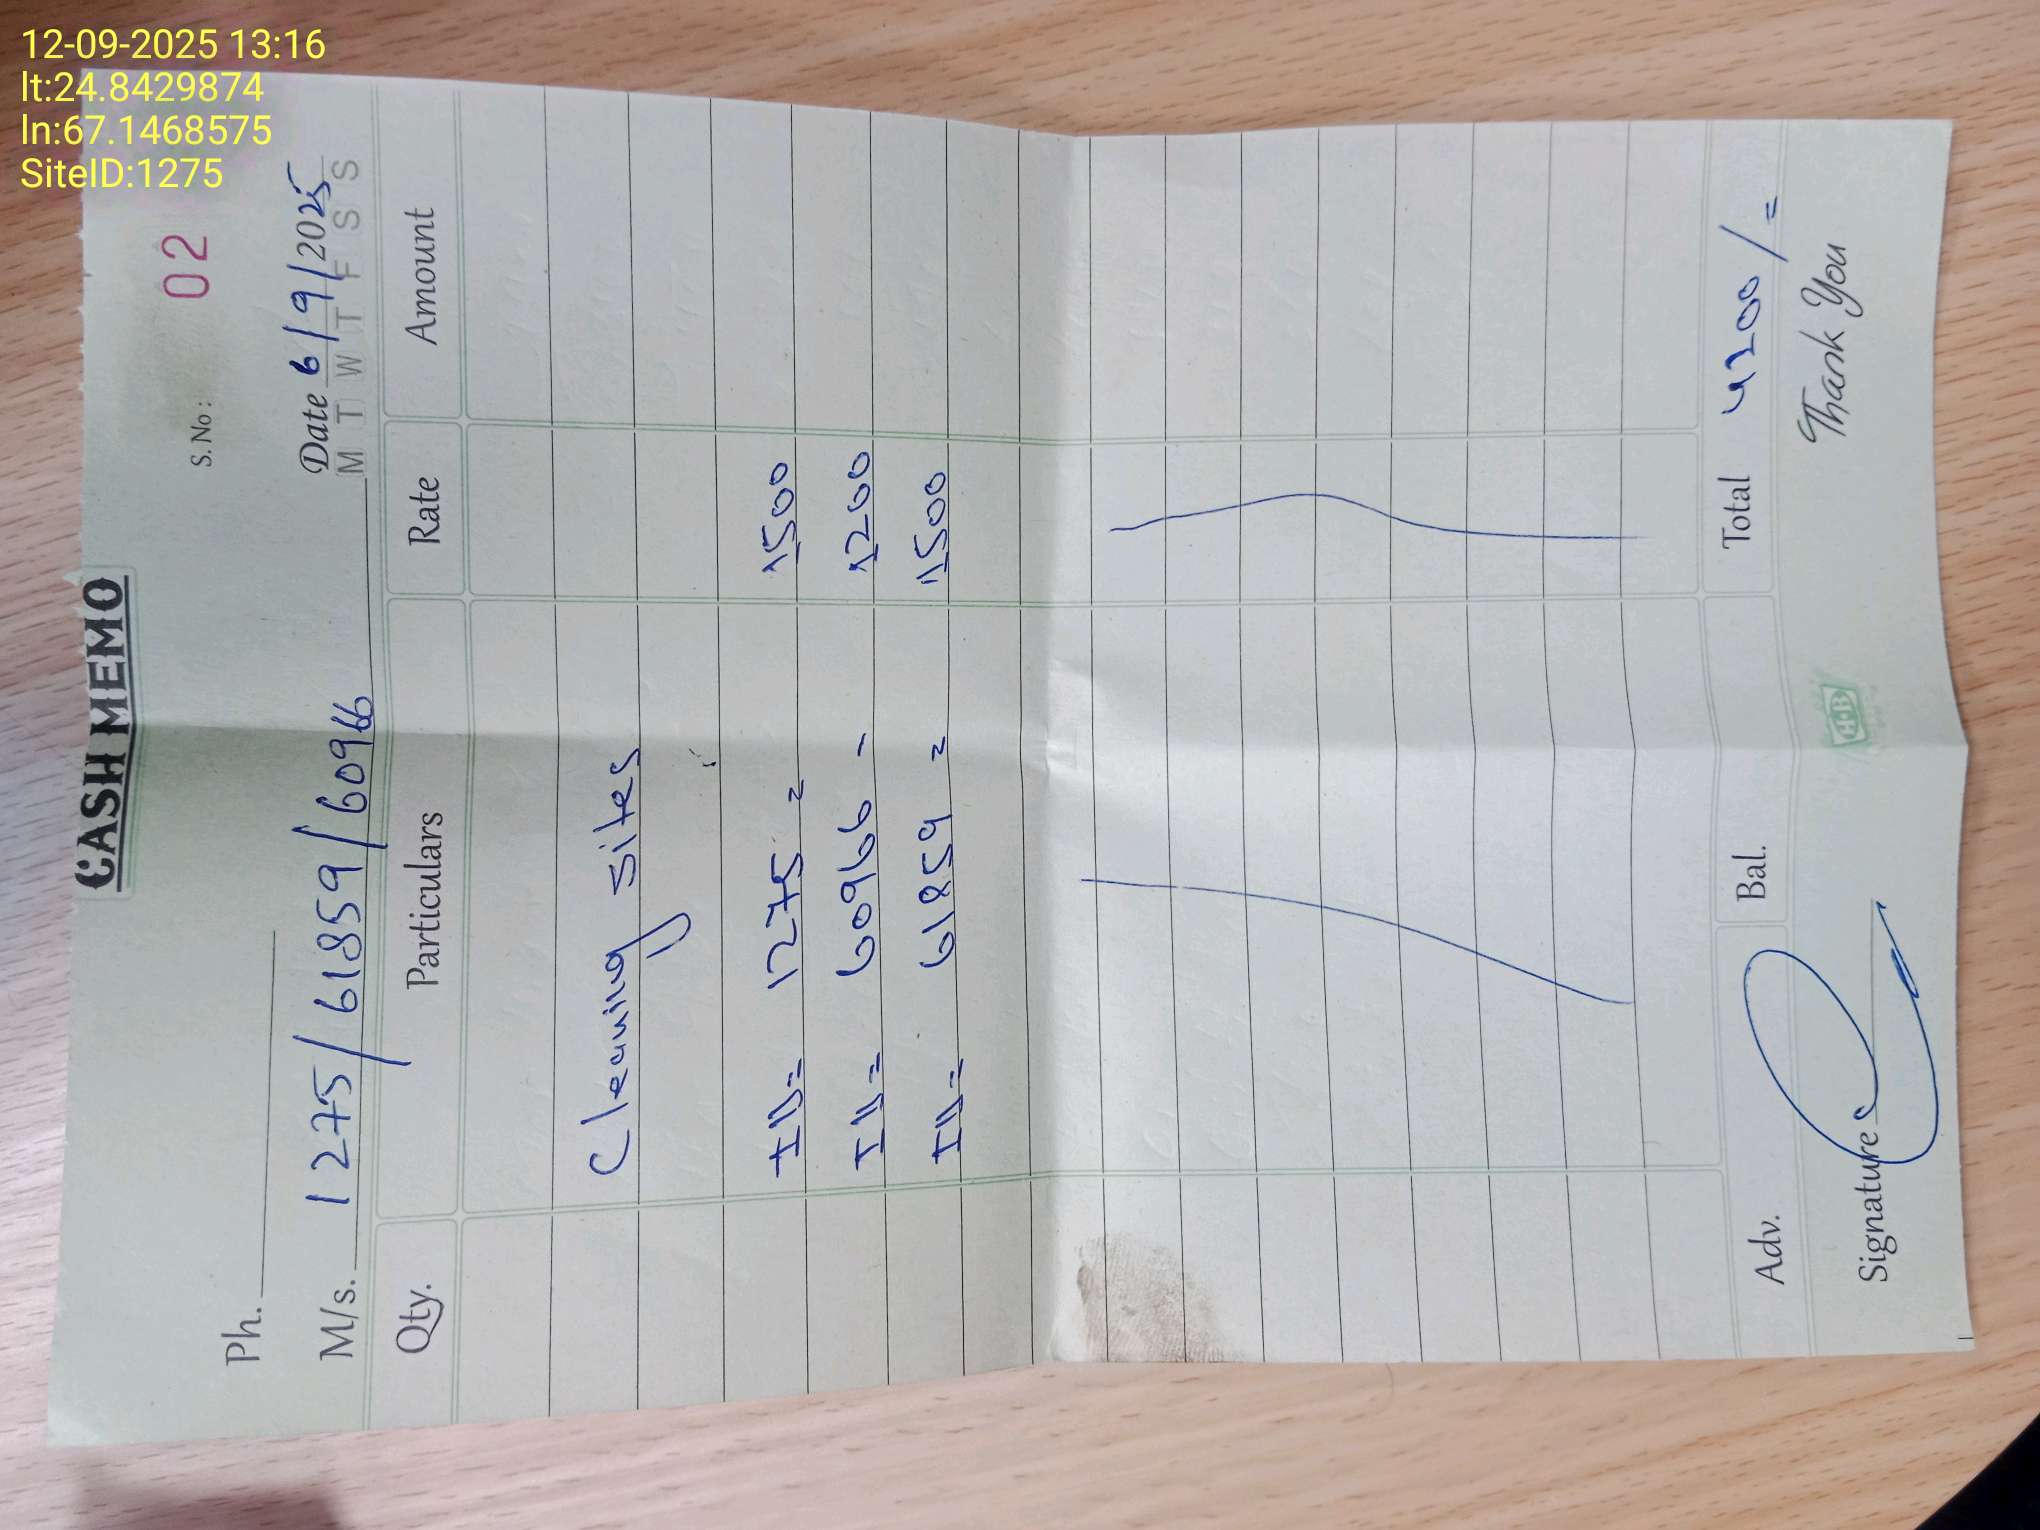 12-09-2025 13:16
lt:24.8429874
ln:67.1468575
SiteID:1275
CASH MEMO
S. No: 02
Ph.
Date 6/9/2025
M T W T F S S
M/s. 1275/61859/60966
Qty. Particulars Rate Amount
Cleaning sites
ID= 1275 = 1500
ID= 60966 - 1200
ID= 61859 = 1500
Adv. Bal. Total 4200/=
Signature
Thank You
HB